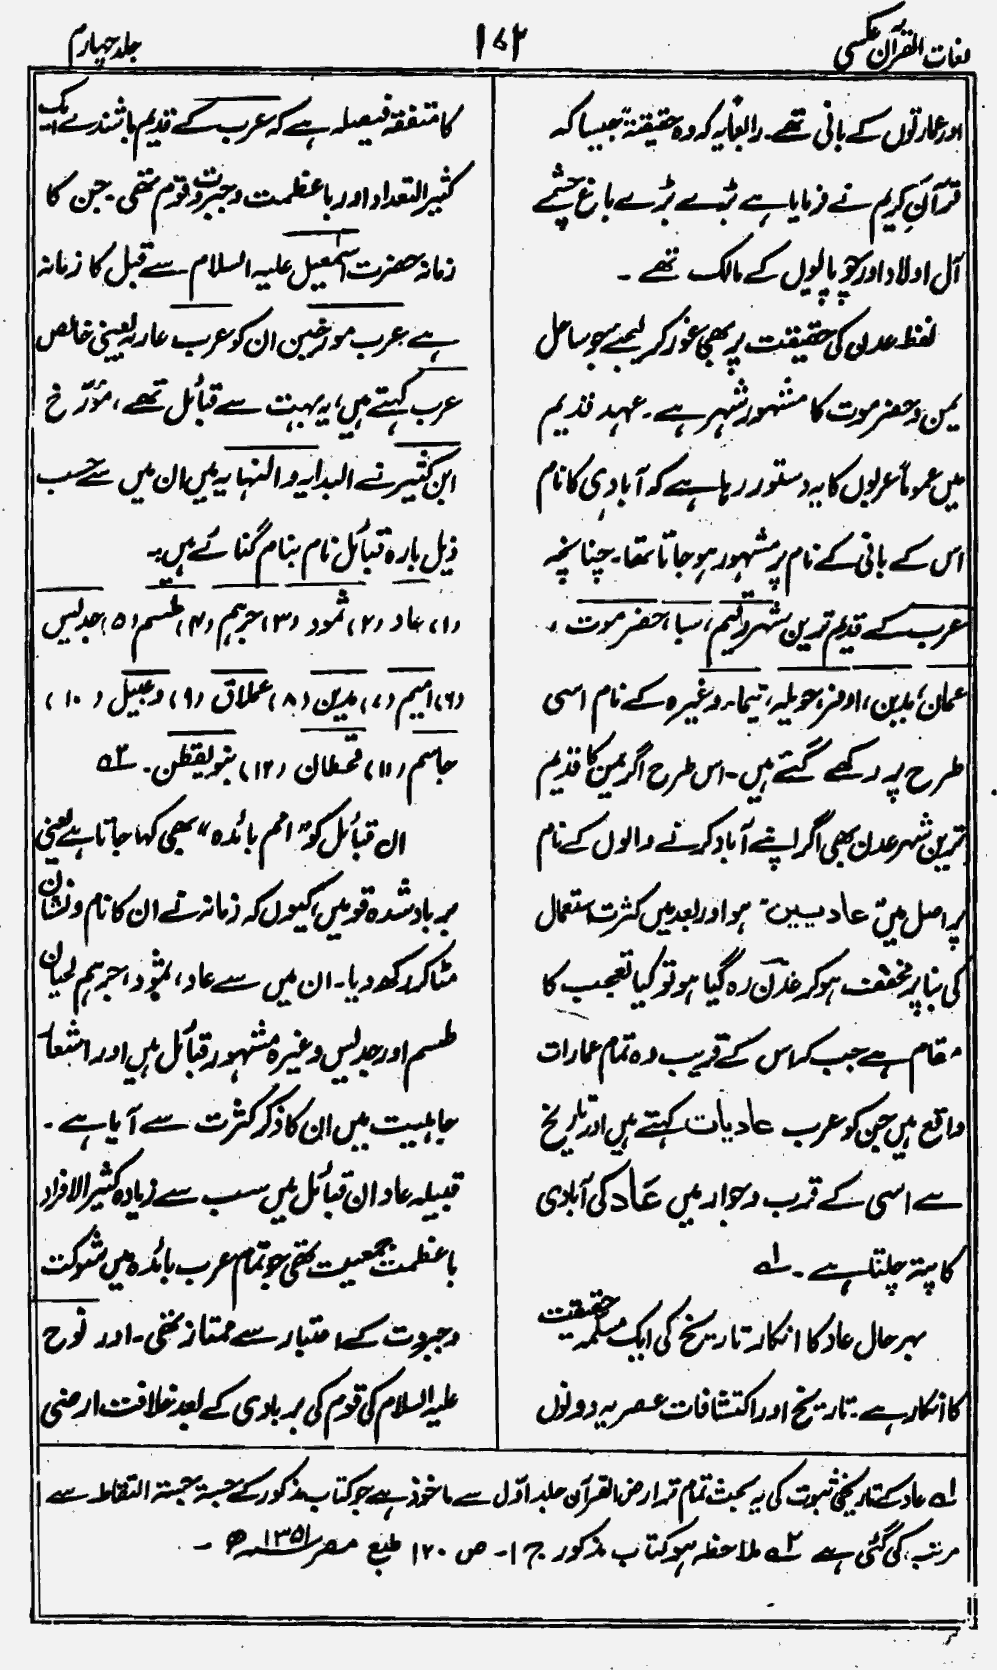 لغات القرآن عکسی
۱۷۲
جلد چہارم
اور عمارتوں کے بانی تھے۔ رابعاً یہ کہ وہ حقیقۃً جیسا کہ
قرآن کریم نے فرمایا ہے بڑے بڑے باغ چشمے
آل اولاد اور چوپایوں کے مالک تھے ۔
لفظ عدن کی حقیقت پر بھی غور کر لیجئے جو ساحل
یمن وحضرموت کا مشہور شہر ہے۔ عہد قدیم
میں عموماً عربوں کا یہ دستور رہا ہے کہ آبادی کا نام
اس کے بانی کے نام پر مشہور ہو جاتا تھا۔ چنانچہ
عرب کے قدیم ترین شہر ، سبا، حضرموت ،
عمان، مدین، اوفر، حویلہ، تیماء وغیرہ کے نام اسی
طرح پر رکھے گئے ہیں۔ اس طرح اگر یمن کا قدیم
ترین شہر عدن بھی اگر اپنے آباد کرنے والوں کے نام
پر اصل میں عادیین ہو اور بعد میں کثرت استعمال
کی بنا پر مخفف ہو کر عدن رہ گیا ہو تو کیا تعجب کا
مقام ہے جب کہ اس کے قریب وہ تمام عمارات
واقع ہیں جن کو عرب عادیات کہتے ہیں اور تاریخ
سے اسی کے قرب وجوار میں عاد کی آبادی
کا پتہ چلتا ہے ۔ ۱؎
بہر حال عاد کا انکار تاریخ کی ایک مسلمہ حقیقت
کا انکار ہے۔ تاریخ اور اکتشافات عصریہ دونوں
کا متفقہ فیصلہ ہے کہ عرب کے قدیم باشندے ایک
کثیر التعداد اور باعظمت وجبروت قوم تھی۔ جن کا
زمانہ حضرت اسمٰعیل علیہ السلام سے قبل کا زمانہ
ہے عرب مورخین ان کو عرب عاربہ یعنی خالص
عرب کہتے ہیں، یہ بہت سے قبائل تھے، مؤرخ
ابن کثیر نے البدایہ والنہایہ میں ان میں سے حسب
ذیل بارہ قبائل نام بنام گنائے ہیں:۔
(۱) عاد (۲) ثمود (۳) جرہم (۴) طسم (۵) جدیس
(۶) امیم (۷) مدین (۸) عملاق (۹) عبیل (۱۰)
جاسم (۱۱) قحطان (۱۲) بنو یقطن۔ ۲؎
ان قبائل کو "امم بائدہ" بھی کہا جاتا ہے یعنی
برباد شدہ قومیں کیوں کہ زمانہ نے ان کا نام و نشان
مٹا کر رکھ دیا۔ ان میں سے عاد، ثمود، جرہم لحیان
طسم اور جدیس وغیرہ مشہور قبائل ہیں اور اشعار
جاہلیت میں ان کا ذکر کثرت سے آیا ہے ۔
قبیلہ عاد ان قبائل میں سب سے زیادہ کثیر الافراد
باعظمت جمعیت تھی جو تمام عرب بائدہ میں شوکت
وجبروت کے اعتبار سے ممتاز تھی۔ اور نوح
علیہ السلام کی قوم کی بربادی کے بعد خلافت ارضی
۱؎ عاد کے تاریخی ثبوت کی یہ بحث تمام تر ارض القرآن جلد اوّل سے ماخوذ ہے جو کتاب مذکور کے جستہ جستہ التقاط سے
مرتب کی گئی ہے ۲؎ ملاحظہ ہو کتاب مذکور ج ۱۔ ص ۱۲۰ طبع مصر ۱۳۵۱ھ ۔